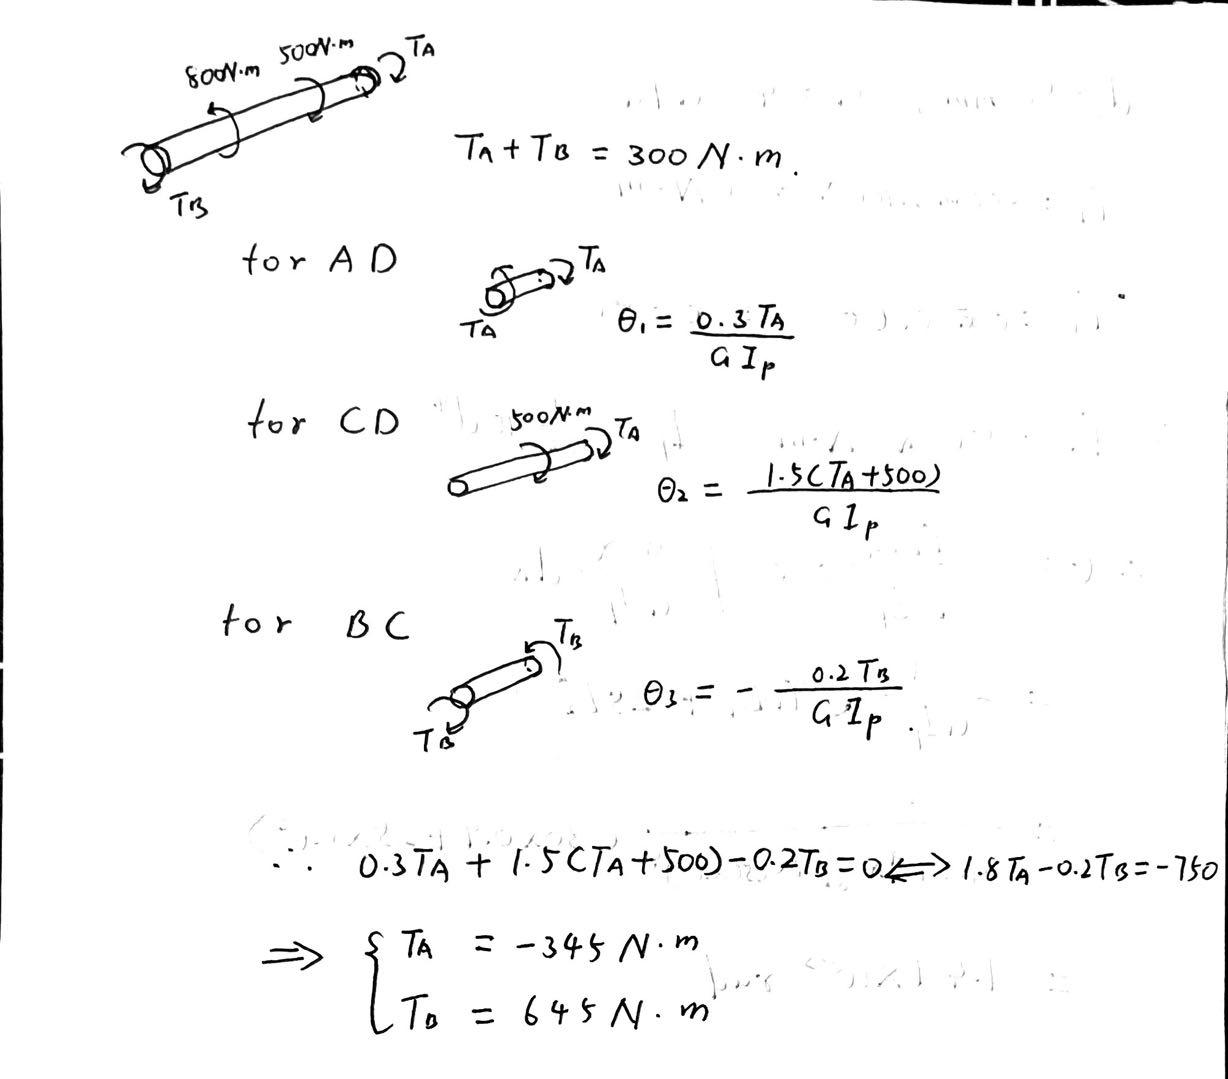 800N·m 500N·m TA
TB
TA + TB = 300 N·m.
for AD
TA
TA
θ1 = 0.3 TA / G Ip
for CD
500N·m TA
θ2 = 1.5(TA+500) / G Ip
for BC
TB
TB
θ3 = - 0.2 TB / G Ip .
∴ 0.3TA + 1.5(TA+500)-0.2TB=0 ⟺ 1.8TA-0.2TB=-750
⇒ { TA = -345 N·m
TB = 645 N·m